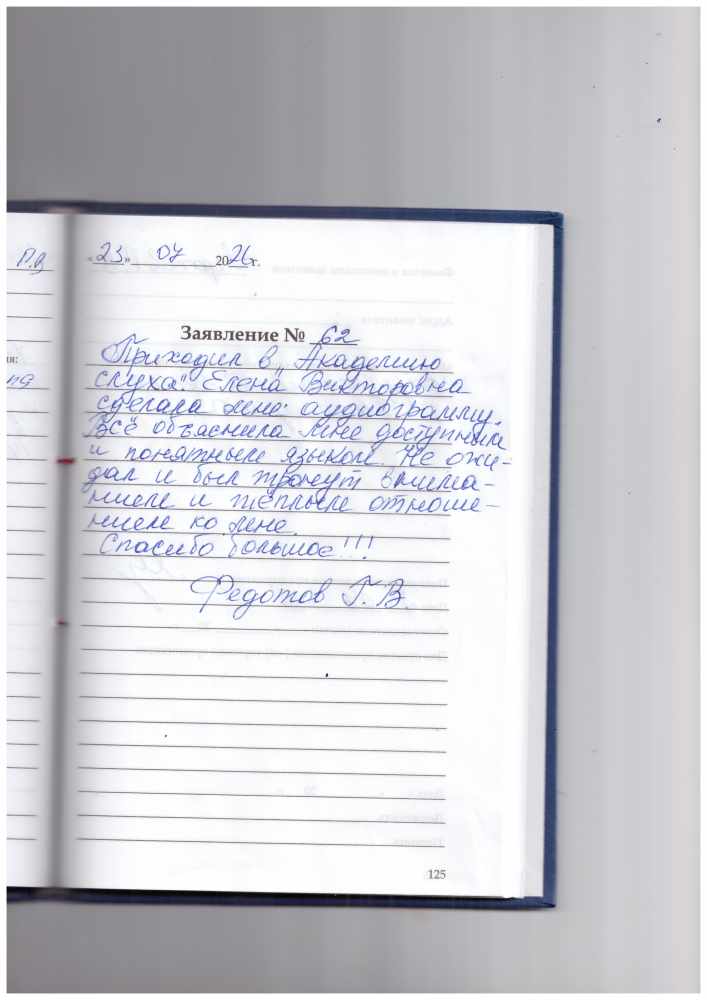 П.В
ия:
"23" 07 2026 г.
Заявление № 62
Приходил в „Академию
слуха". Елена Викторовна
сделала мне аудиограмму.
Всё объяснила мне доступным
и понятным языком. Не ожи-
дал и был тронут внима-
нием и тёплым отноше-
нием ко мне.
Спасибо большое!!!
Федотов Г. В.
125